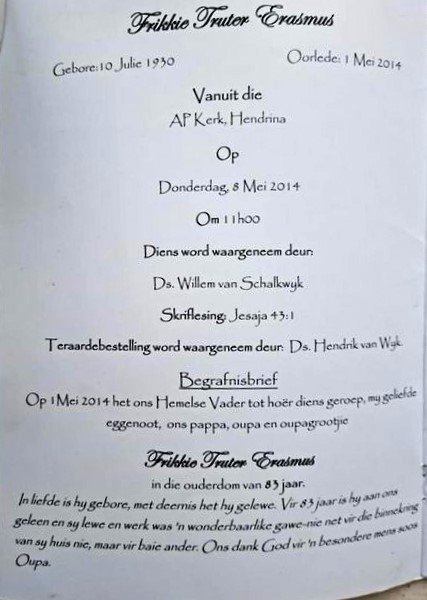 Frikkie Truter Erasmus
Gebore:10 Julie 1930
Oorlede: 1 Mei 2014
Vanuit die
AP Kerk, Hendrina
Op
Donderdag, 8 Mei 2014
Om 11h00
Diens word waargeneem deur:
Ds. Willem van Schalkwyk
Skriflesing: Jesaja 43:1
Teraardebestelling word waargeneem deur: Ds. Hendrik van Wyk.
Begrafnisbrief
Op 1Mei 2014 het ons Hemelse Vader tot hoër diens geroep, my geliefde
eggenoot, ons pappa, oupa en oupagrootjie
Frikkie Truter Erasmus
in die ouderdom van 83 jaar.
In liefde is hy gebore, met deernis het hy gelewe. Vir 83 jaar is hy aan ons
geleen en sy lewe en werk was 'n wonderbaarlike gawe-nie net vir die binnekring
van sy huis nie, maar vir baie ander. Ons dank God vir 'n besondere mens soos
Oupa.